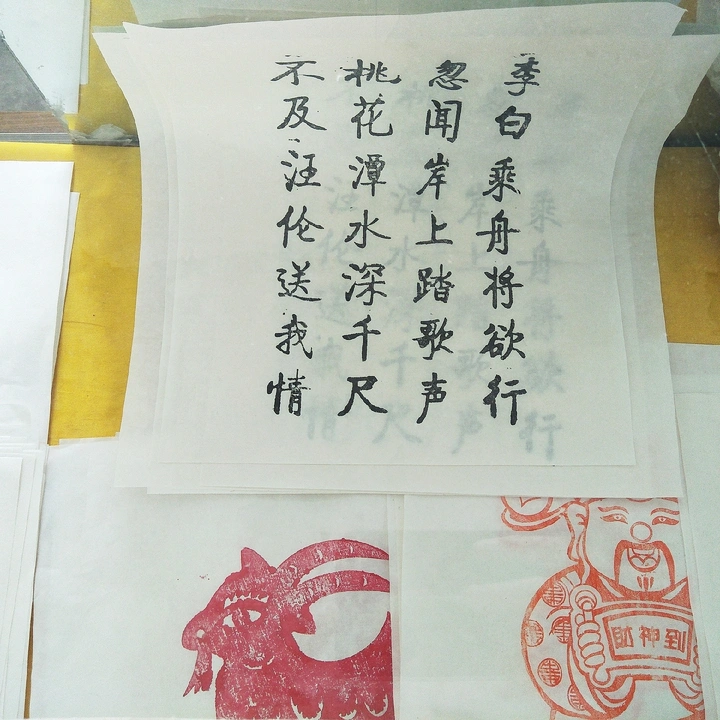 李白乘舟将欲行
忽闻岸上踏歌声
桃花潭水深千尺
不及汪伦送我情
到神财